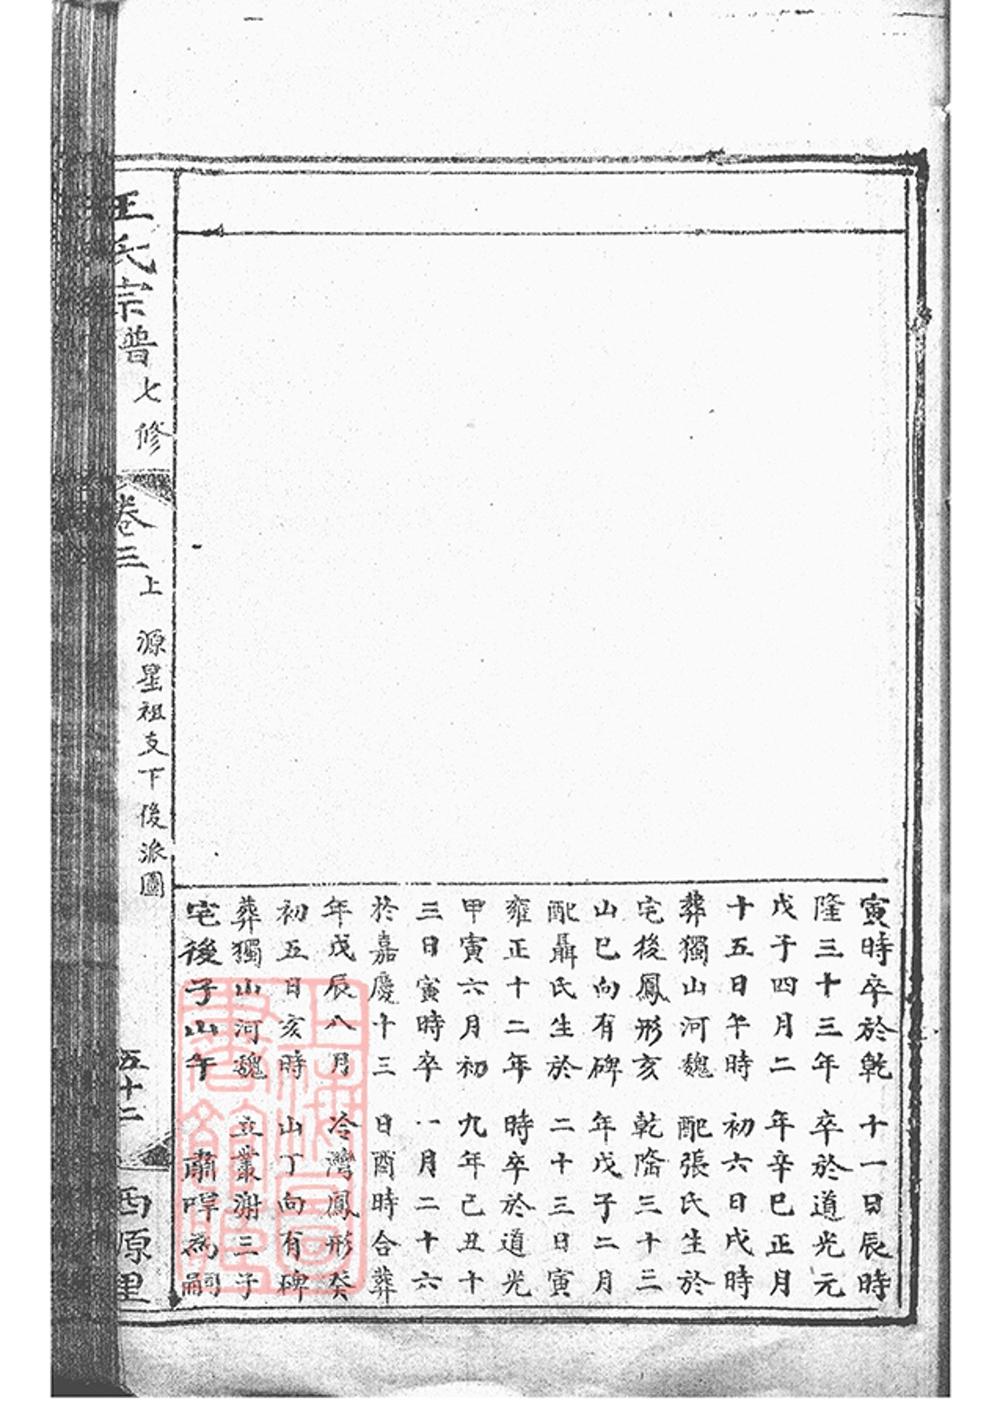 寅時卒於乾
隆三十三年
戊子四月二
十五日午時
葬獨山河魏
宅後鳳形亥
山巳向有碑
配聶氏生於
雍正十二年
甲寅六月初
三日寅時卒
於嘉慶十三
年戊辰八月
初五日亥時
葬獨山河魏
宅後子山午
十一日辰時
卒於道光元
年辛巳正月
初六日戌時
配張氏生於
乾隆三十三
年戊子二月
二十三日寅
時卒於道光
九年己丑十
一月二十六
日酉時合葬
冷灣鳳形癸
山丁向有碑
立叢謝三子
肅哻為嗣
王氏宗譜 七修
卷三上 源星祖支下後派圖
五十二
西原里
上海圖
書館藏